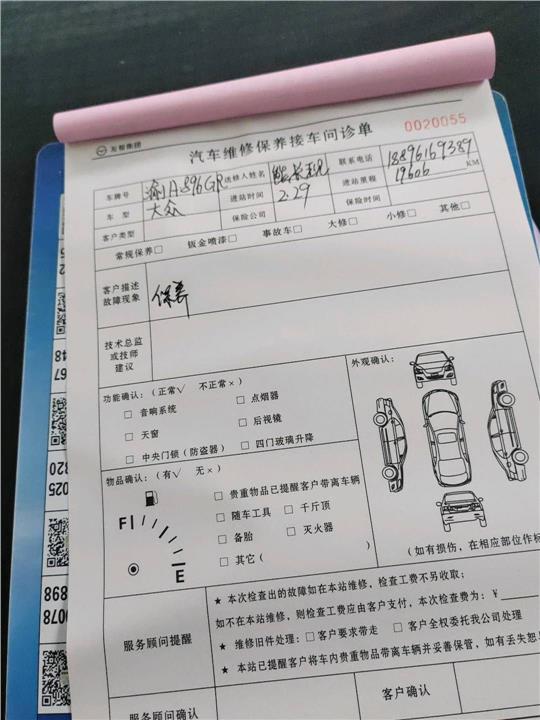 友帮集团
汽车维修保养接车问诊单 0020055
车牌号 渝A896GR 送修人姓名 联系电话 18896169389
车 型 大众 进站时间 2.29 进站里程 19606 KM
客户类型 保险公司 保险时间
常规保养□ 钣金喷漆□ 事故车□ 大修□ 小修□ 其他□
客户描述
故障现象
保养
技术总监
或技师
建议
功能确认：（正常√ 不正常×） 外观确认：
□ 音响系统 □ 点烟器
□ 天窗 □ 后视镜
□ 中央门锁（防盗器） □ 四门玻璃升降
物品确认：（有√ 无×）
□ 贵重物品已提醒客户带离车辆
□ 随车工具 □ 千斤顶
□ 备胎 □ 灭火器
□ 其它（ ）
F
E
（如有损伤，在相应部位作标
服务顾问提醒
★ 本次检查出的故障如在本站维修，检查工费不另收取；
如不在本站维修，则检查工费应由客户支付，本次检查费为：￥
★ 维修旧件处理：□ 客户要求带走 □ 客户全权委托我公司处理
★ 本站已提醒客户将车内贵重物品带离车辆并妥善保管，如有丢失恕
服务顾问确认 客户确认
48
67
820
2025
898
0078